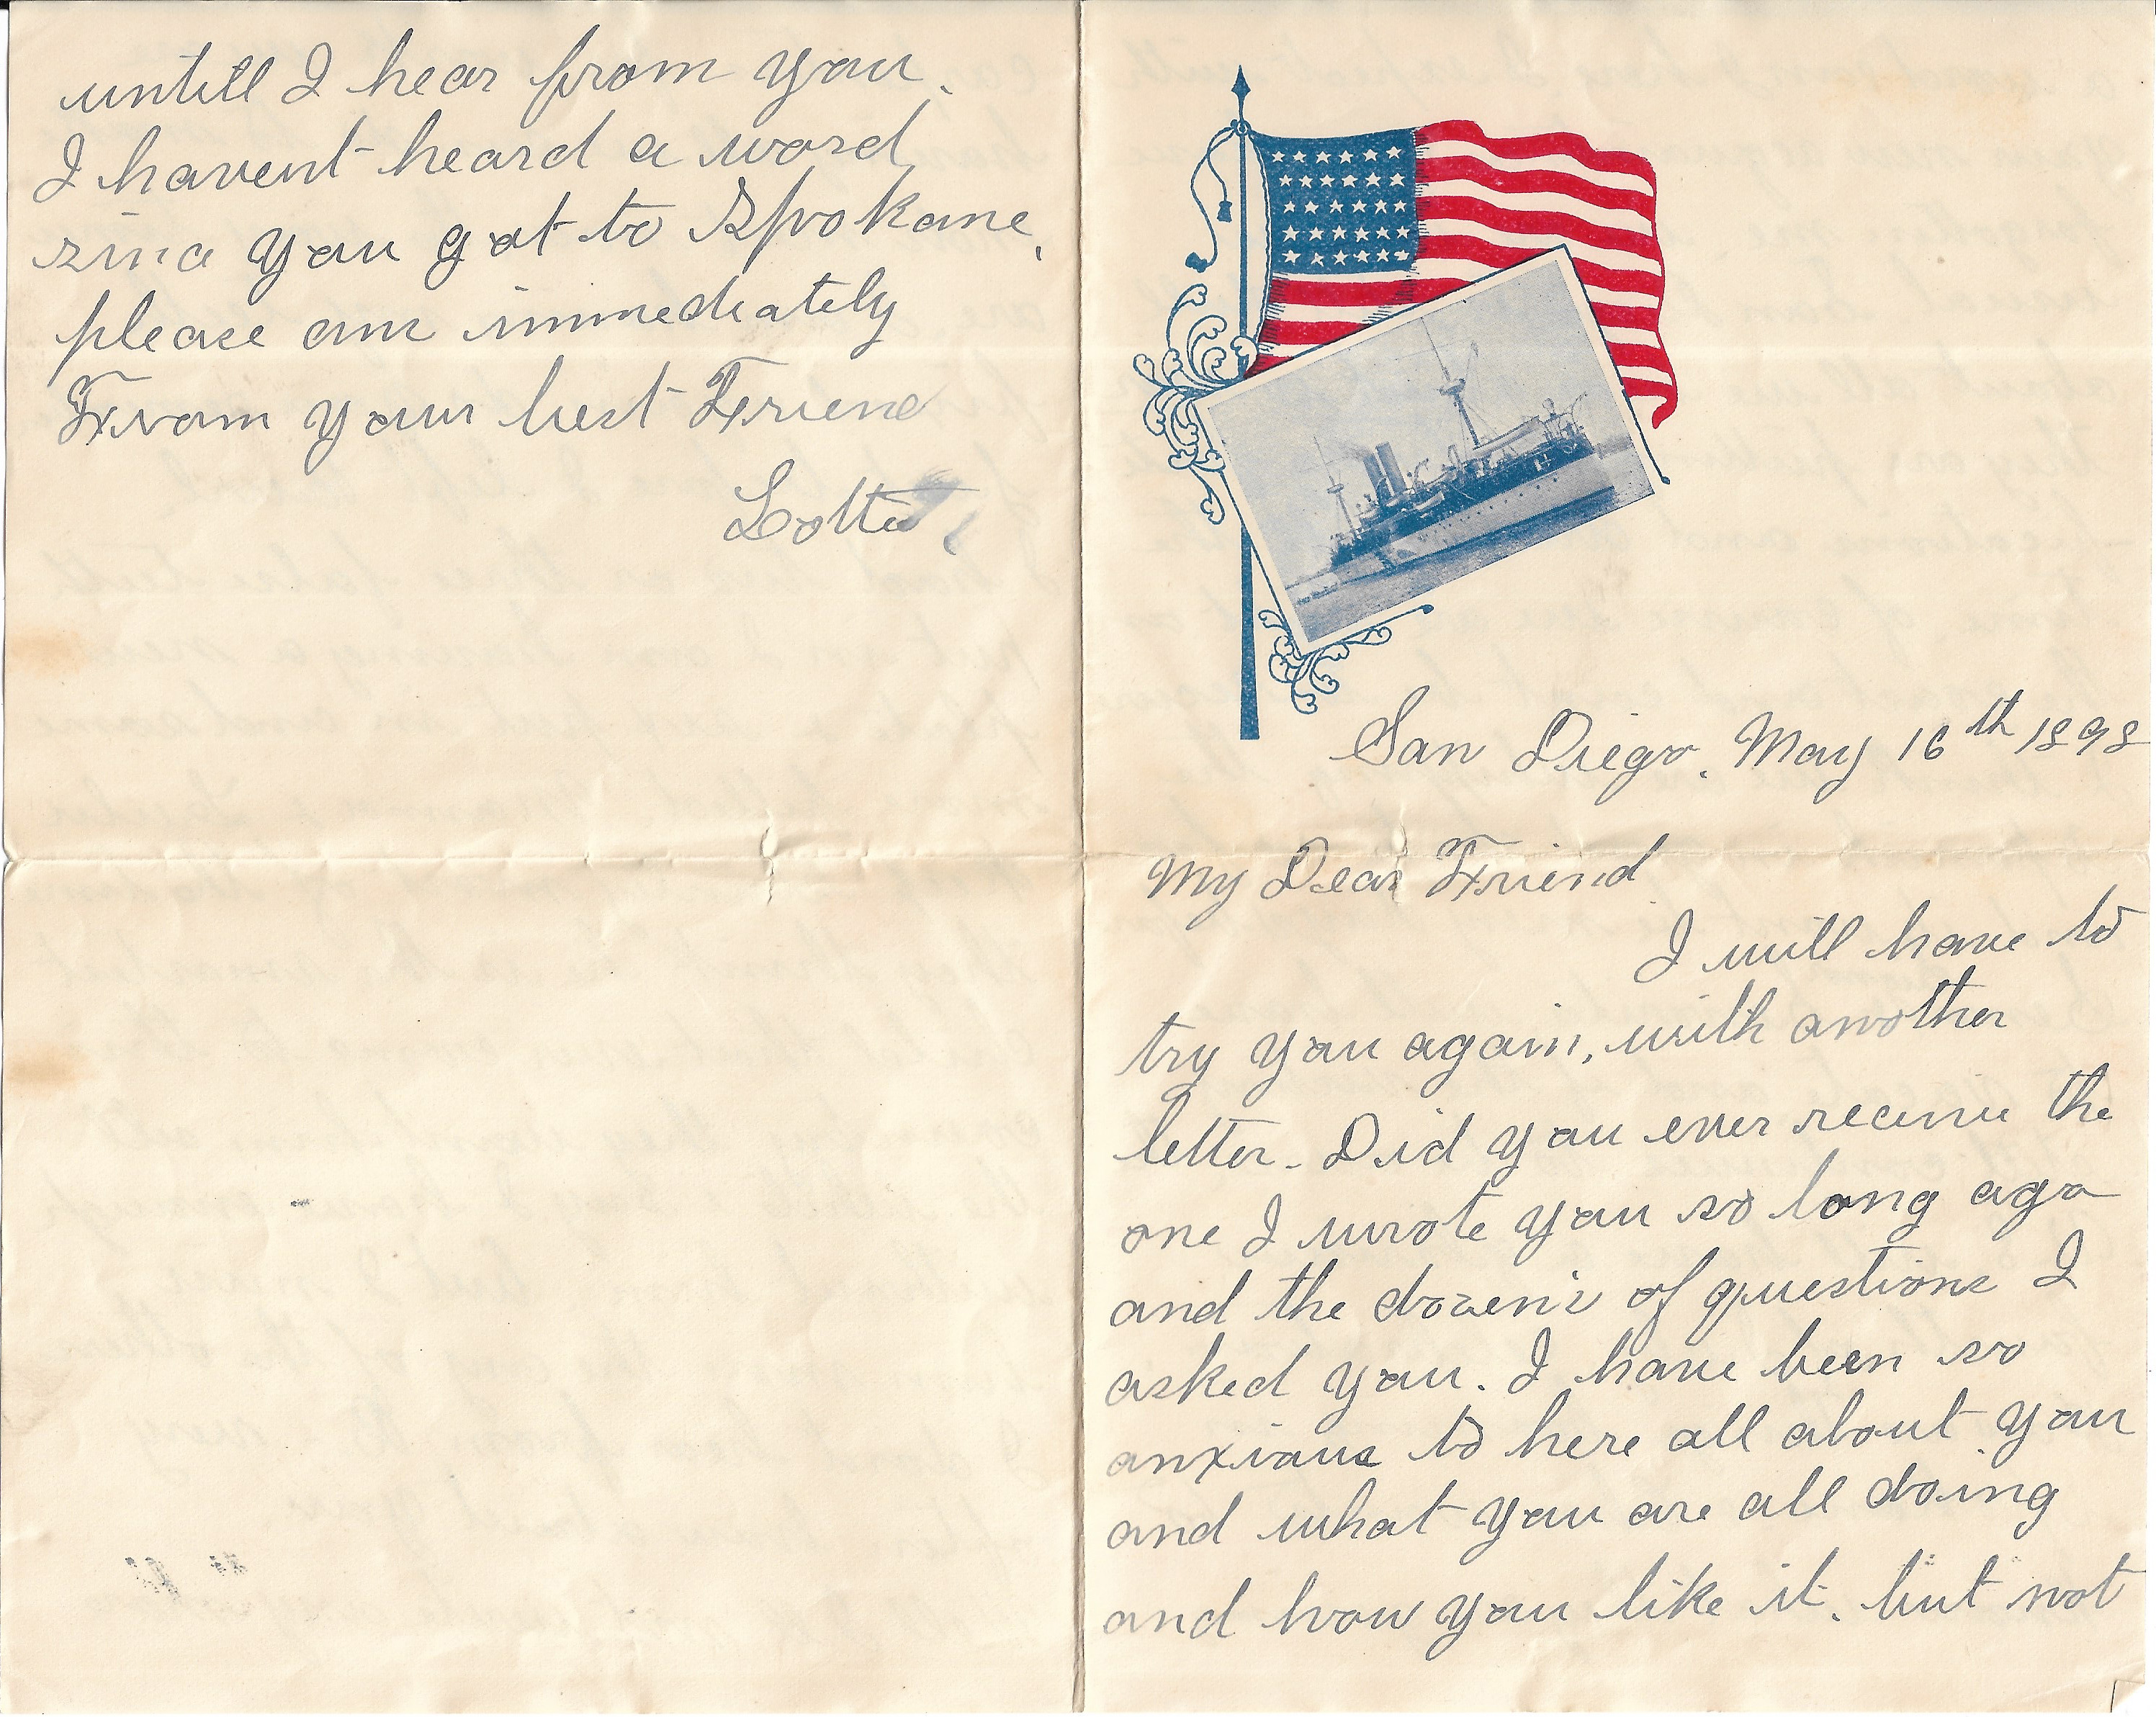 San Diego. May 16th 1898
My Dear Friend
I will have to
try you again, with another
letter. Did you ever receive the
one I wrote you so long ago
and the dozens of questions I
asked you. I have been so
anxious to here all about you
and what you are all doing
and how you like it. but not
untill I hear from you.
I havent heard a word
since you got to Spokane,
please ans immediately
From your best Friend
Lottie